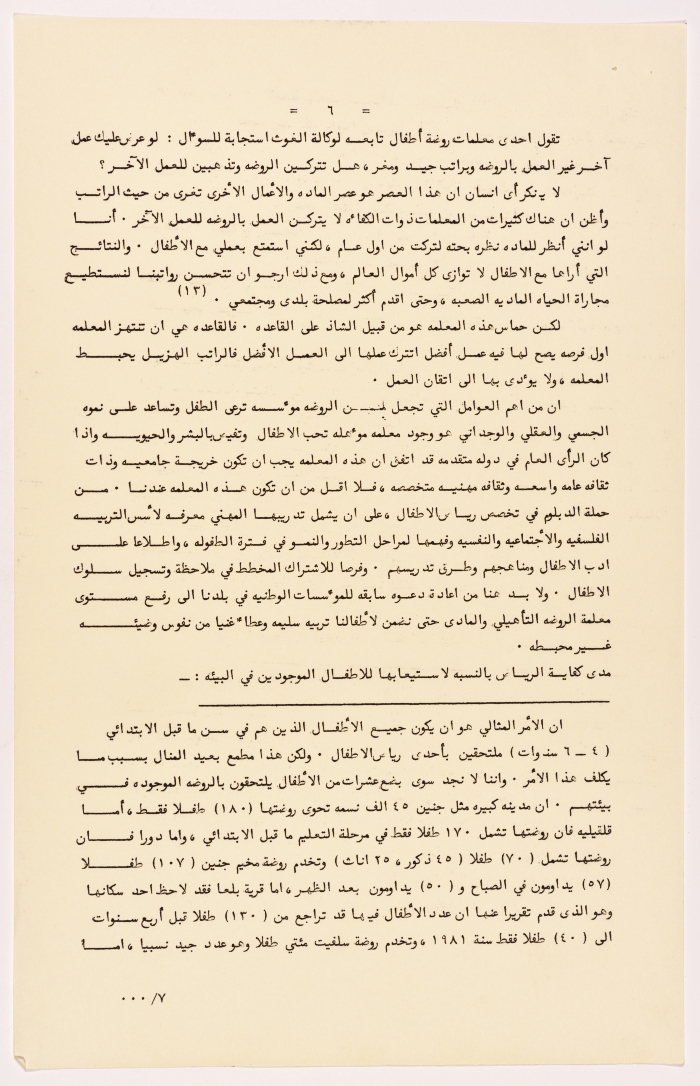 = ٦ =
تقول احدى معلمات روضة أطفال تابعه لوكالة الغوث استجابة للسوءال : لو عرض عليك عمل
آخر غير العمل بالروضه وبراتب جيد ومغر ، هل تتركين الروضه وتذهبين للعمل الآخر ؟
لا ينكر أى انسان ان هذا العصر هو عصر الماده والأعمال الأخرى تغرى من حيث الراتب
وأظن ان هناك كثيرات من المعلمات ذوات الكفاءه لا يتركن العمل بالروضه للعمل الآخر ٠ أنا
لو انني أنظر للماده نظره بحته لتركت من اول عام ، لكني استمتع بعملي مع الأطفال ٠ والنتائج
التي أراها مع الاطفال لا توازى كل أموال العالم ، ومع ذلك ارجو ان تتحسن رواتبنا لنستطيع
مجاراة الحياه الماديه الصعبه ، وحتى اقدم أكثر لمصلحة بلدى ومجتمعي ٠ (١٣)
لكن حماس هذه المعلمه هو من قبيل الشاذ على القاعده ٠ فالقاعده هي ان تنتهز المعلمه
اول فرصه يصح لها فيه عمل أفضل اتترك عملها الى العمل الأفضل فالراتب الهزيل يحبط
المعلمه ، ولا يوءدى بها الى اتقان العمل ٠
ان من اهم العوامل التي تجعل من الروضه موءسسه ترعى الطفل وتساعد على نموه
الجسمي والعقلي والوجداني هو وجود معلمه موءهله تحب الاطفال وتفيض بالبشر والحيويه واذا
كان الرأى العام في دوله متقدمه قد اتفق ان هذه المعلمه يجب ان تكون خريجة جامعيه وذات
ثقافه عامه واسعه وثقافه مهنيه متخصصه ، فلا اقل من ان تكون هذه المعلمه عندنا ٠ من
حملة الدبلوم في تخصص رياض الاطفال ، على ان يشمل تدريبها المهني معرفه لأسس التربيه
الفلسفيه والأجتماعيه والنفسيه وفهمها لمراحل التطور والنمو في فترة الطفوله ، واطلاعا على
ادب الاطفال ومناهجهم وطرق تدريسهم ٠ وفرصا للاشتراك المخطط في ملاحظة وتسجيل سلوك
الاطفال ٠ ولا بد هنا من اعادة دعوه سابقه للموءسسات الوطنيه في بلدنا الى رفع مستوى
معلمة الروضه التأهيلي والمادى حتى نضمن لأطفالنا تربيه سليمه وعطاء غنيا من نفوس وضيئه
غير محبطه ٠
مدى كفاية الرياض بالنسبه لاستيعابها للاطفال الموجودين في البيئه : ــ
ان الأمر المثالي هو ان يكون جميع الأطفال الذين هم في سن ما قبل الابتدائي
( ٤ ــ ٦ سنوات ) ملتحقين بأحدى رياض الاطفال ٠ ولكن هذا مطمع بعيد المنال بسبب ما
يكلف هذا الأمر ٠ واننا لا نجد سوى بضع عشرات من الأطفال يلتحقون بالروضه الموجوده في
بيئتهم ٠ ان مدينه كبيره مثل جنين ٤٥ الف نسمه تحوى روضتها (١٨٠) طفلا فقط ، أما
قلقيليه فان روضتها تشمل ١٧٠ طفلا فقط في مرحلة التعليم ما قبل الابتدائي ، واما دورا فان
روضتها تشمل (٧٠) طفلا (٤٥ ذكور ، ٢٥ اناث) وتخدم روضة مخيم جنين (١٠٧) طفلا
(٥٧) يداومون في الصباح و (٥٠) يداومون بعد الظهر ، اما قرية بلعا فقد لاحظ احد سكانها
وهو الذى قدم تقريرا عنها ان عدد الأطفال فيها قد تراجع من (١٣٠) طفلا قبل أربع سنوات
الى (٤٠) طفلا فقط سنة ١٩٨١ ، وتخدم روضة سلفيت مئتي طفلا وهو عدد جيد نسبيا ، اما
٠٠٠ /٧